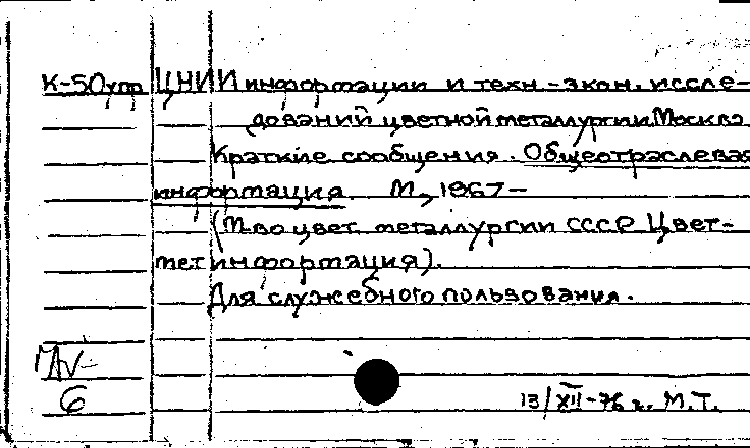 К-50упр ЦНИИ информации и техн-экон. иссле-
дований цветной металлургии. Москва
Краткие сообщения. Общеотраслевая
информация. М., 1967 –
(М-во цвет. металлургии СССР. Цвет-
метинформация).
Для служебного пользования.
6
13/XII-76 г. М.Т.